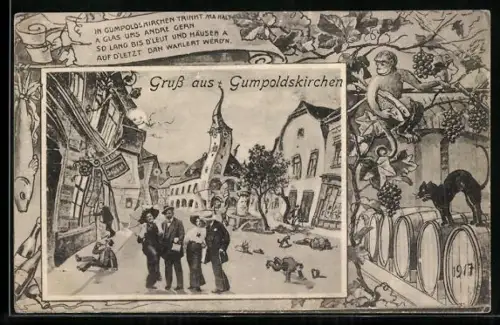 IN GUMPOLDSKIRCHEN TRINKT MA HALT
A GLAS UNS ANDRE GERN
SO LANG BIS D'LEUT UND HÄUSER A
AUF D'LETZT DAN WAKLERT WERD'N.
Gruß aus Gumpoldskirchen
1917